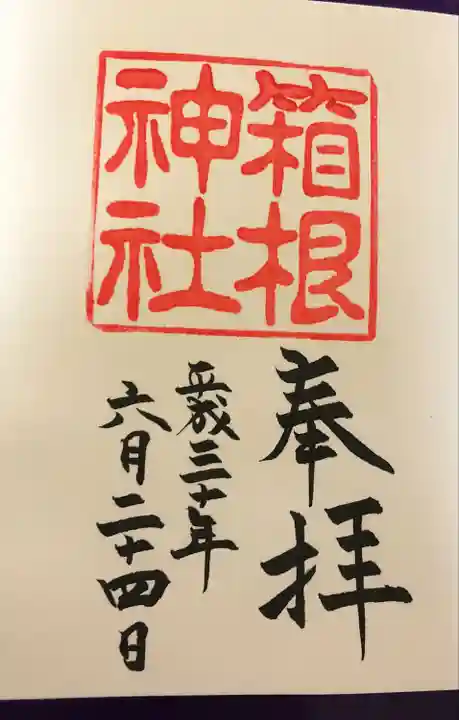 箱根
神社
奉拝
平成三十年
六月二十四日